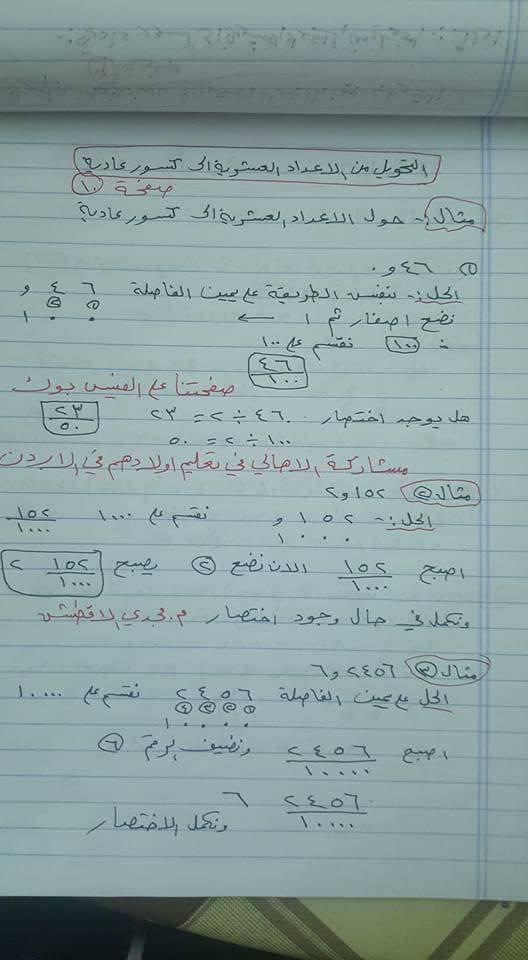 التحويل من الاعداد العشرية الى كسور عادية
صفحة ١٠
مثال :- حول الاعداد العشرية الى كسور عادية
① ٤٦و٠
الحل :- بنفس الطريقة على يمين الفاصلة ٤ ٦ و
نضع اصفار ثم ١ ← ١ ٠ ٠
∴ ١٠٠ نقسم على ١٠٠
٤٦/١٠٠
صفحتنا على الفيس بوك
هل يوجد اختصار ٤٦ ÷ ٢ = ٢٣ ٢٣/٥٠
١٠٠ ÷ ٢ = ٥٠
مشاركة الاهالي في تعليم اولادهم في الاردن
مثال ② ١٥٢و٢
الحل :- ١٥٢ و نقسم على ١٠٠٠ ١٥٢/١٠٠٠
١٠٠٠
اصبح ١٥٢/١٠٠٠ الان نضع ② يصبح ٢ ١٥٢/١٠٠٠
ونكمل في حال وجود اختصار م. مجدي الاقطش
مثال ③ ٢٤٥٦و٦
الحل على يمين الفاصلة ٢٤٥٦ نقسم على ١٠٠٠٠
④ ③ ② ①
١٠٠٠٠
اصبح ٢٤٥٦/١٠٠٠٠ ونضيف الرقم ⑥
٦ ٢٤٥٦/١٠٠٠٠
ونكمل الاختصار